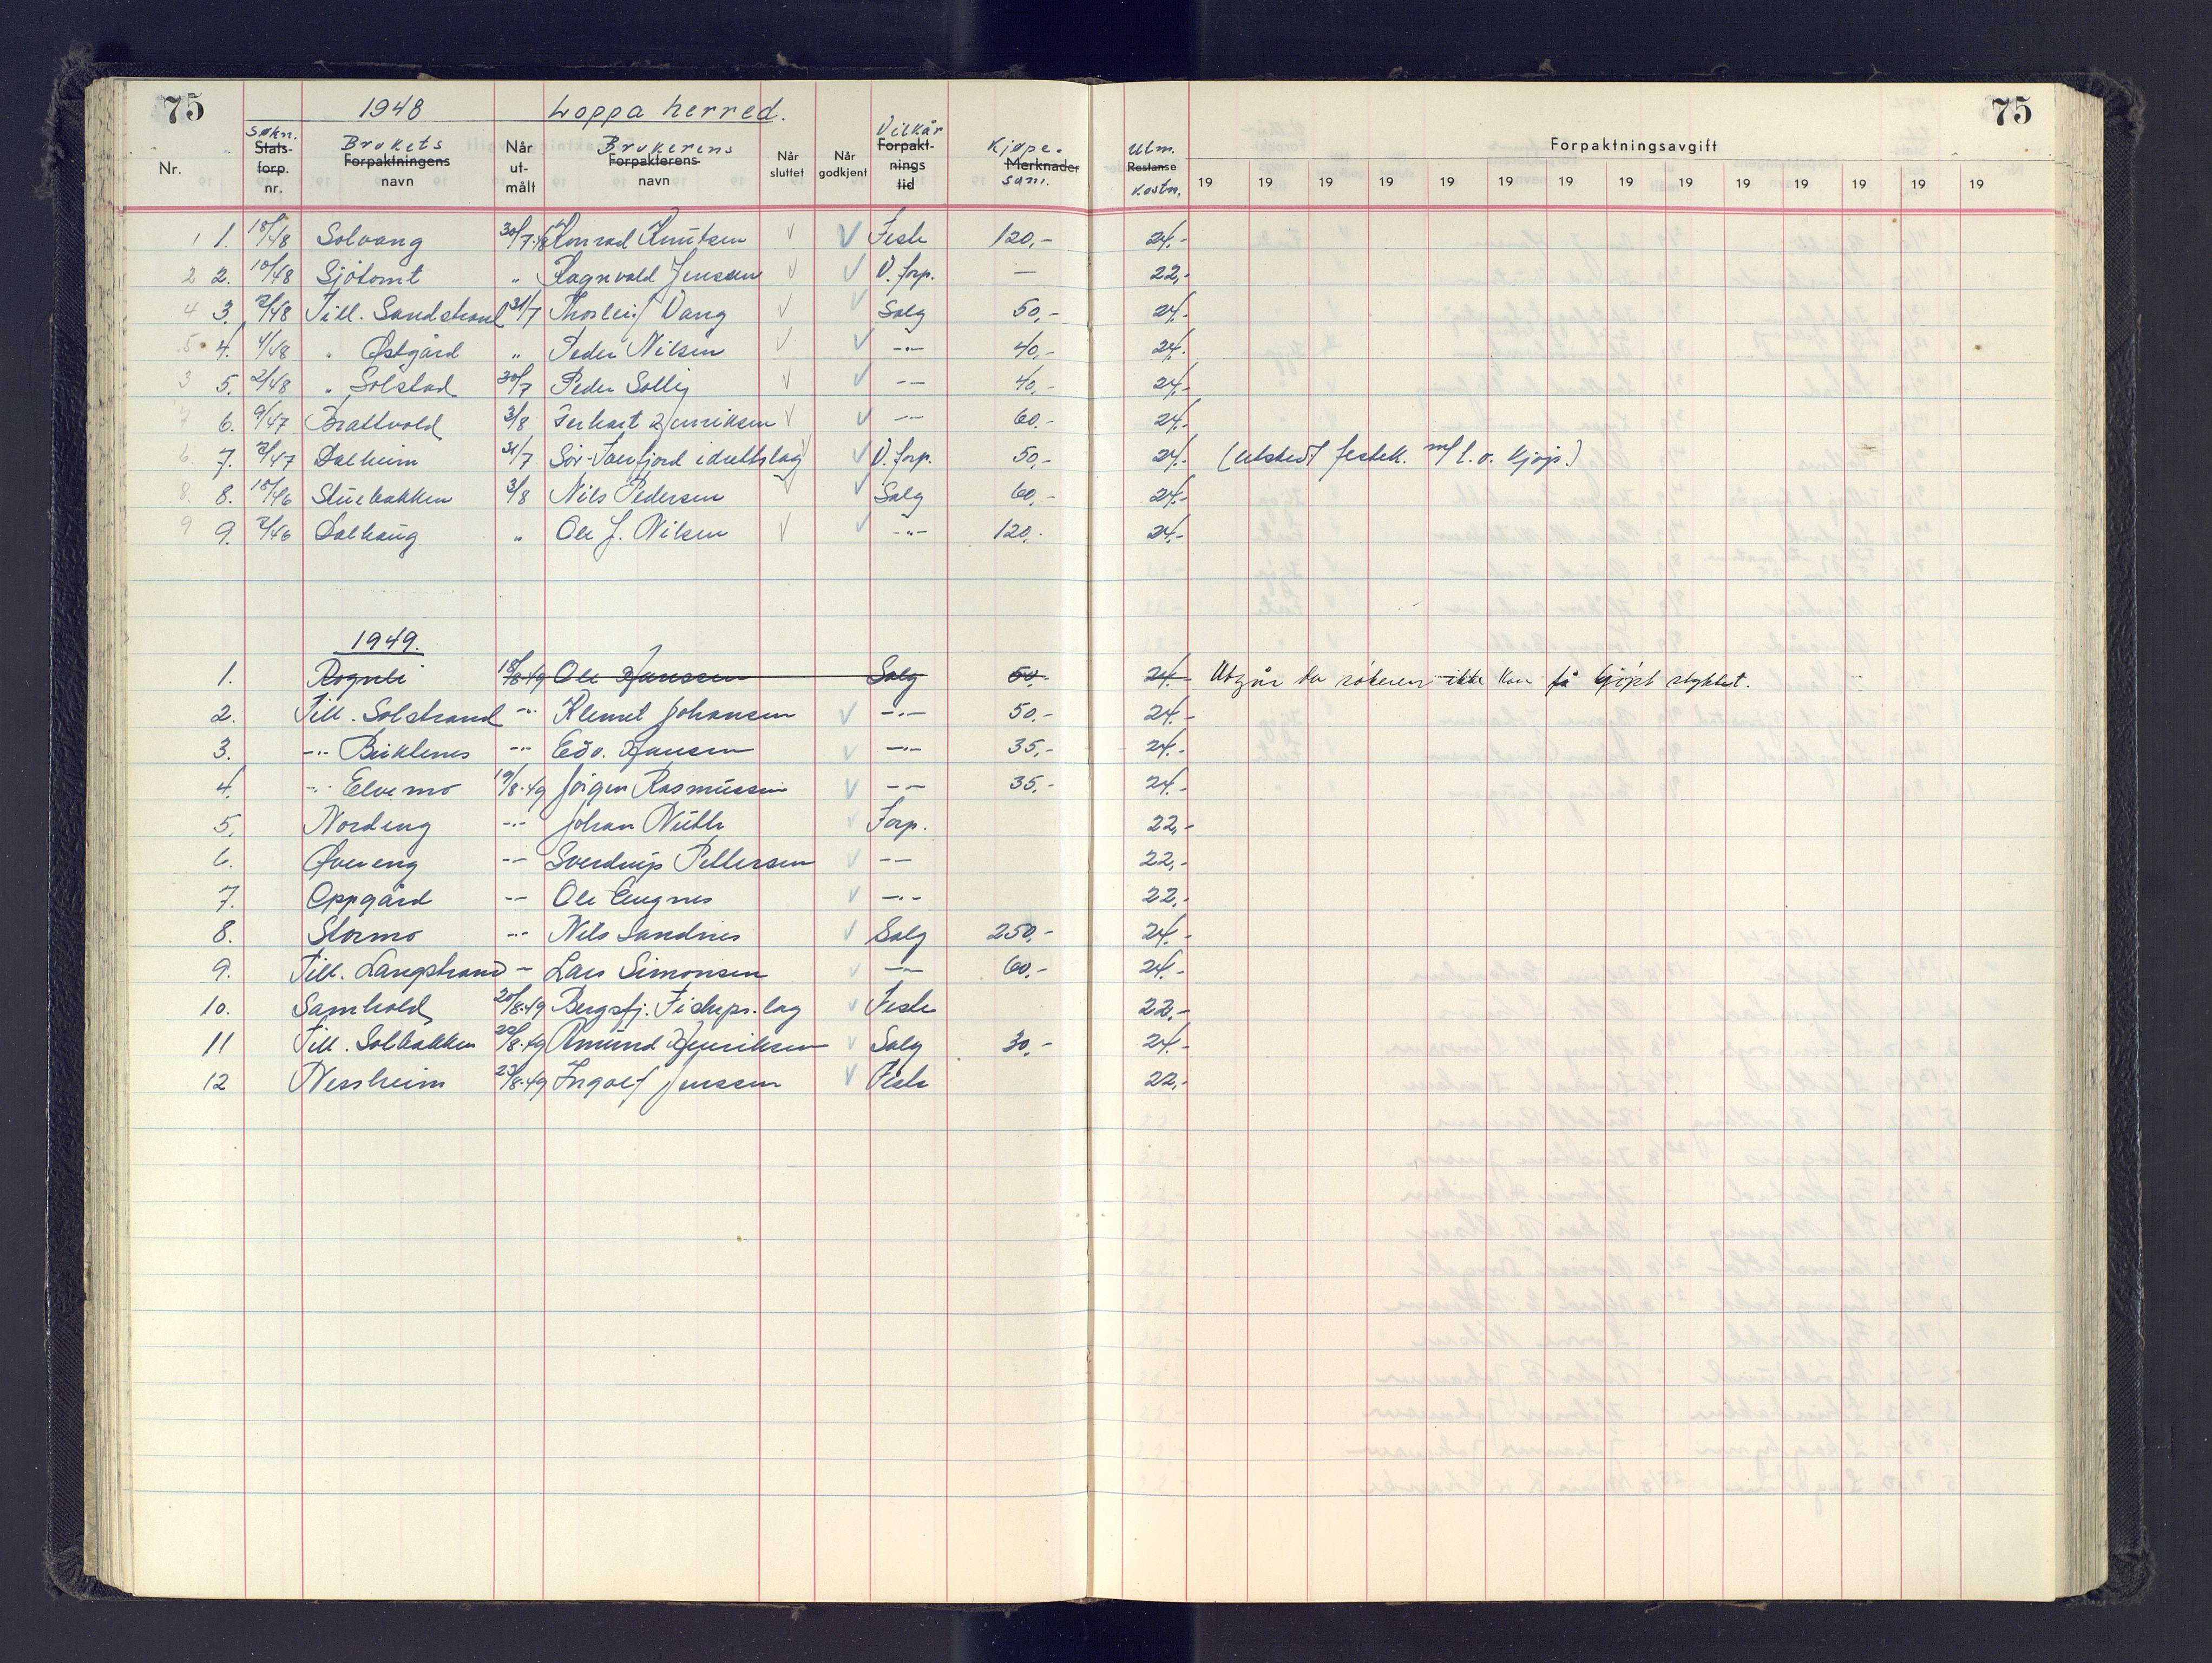 75 1948 Loppa herred. 75
Nr. Søkn. Stats-forp. nr. Brukets Forpaktningens navn Når ut-målt Brukerens Forpakterens navn Når sluttet Når godkjent Vilkår Forpakt-nings tid Kjøpe. Merknader sum. Utm. Restanse kostn. Forpaktningsavgift
19 19 19 19 19 19 19 19 19 19 19 19 19 19
1 1. 10/48 Solvang 30/7.48 Konrad Knutsen √ √ Feste 120,- 24.-
2 2. 10/48 Sjøtomt " Ragnvald Jenssen √ √ V. forp. — 22,-
4 3. 2/48 Till. Sandstrand 31/7 Thorleif Vang √ √ Salg 50,- 24.-
5 4. 4/48 " Østgård " Peder Nilsen √ √ -"- 40,- 24.
3 5. 2/48 " Solstad 30/7 Peder Sollig √ √ -- 40,- 24.-
7 6. 9/47 Brattvold 3/8 Henriksen √ √ -- 60.- 24.-
6. 7. 2/47 Dalheim 31/7 Sør-Tverfjord idrettslag √ √ V. forp. 50,- 24.- (Utstedt festek. m/ l. o. kjøp.)
8. 8. 10/46 Stuebakken 3/8 Nils Pedersen √ √ Salg 60,- 24.-
9 9. 2/46 Dalhaug " Ole J. Nilsen √ √ -"- 120.- 24.-
1949.
1. Rognli 18/8.49 Ole Hanssen Salg 50.- 24.- Utgår da søkeren ikke kan få kjøpt stykket.
2. Till. Solstrand -"- Klemet Johansen √ -"- 50.- 24.-
3. -"- Birklenes -"- Edv. Hansen √ -"- 35,- 24.-
4. -"- Elvemo 19/8.49 Jørgen Rasmussen √ -"- 35,- 24.-
5. Nordeng -"- Johan Nuth √ Forp. 22,-
6. Øvereng -- Sverdrup Pettersen √ -- 22,-
7. Oppgård -- Ole Eugnes √ -"- 22,-
8. Stormo -"- Nils Sandnes √ Salg 250,- 24.-
9. Till. Langstrand - Lars Simonsen √ -"- 60,- 24.-
10. Samhold 20/8.49 Bergsfj. Fiskeps. lag √ Feste 22,-
11 Till. Solbakken 22/8.49 Amund Henriksen √ Salg 30,- 24.-
12 Nessheim 23/8.49 Ingolf Jenssen √ Feste 22,-